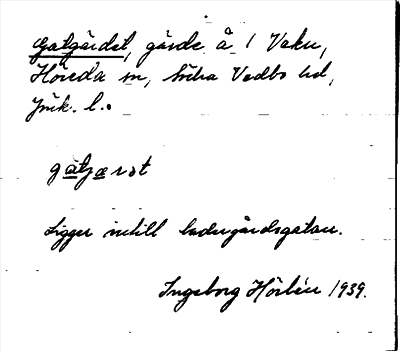 Gatgärdet, gärde å 1 Vaku,
Höreda sn, Södra Vedbo hd,
Jönk. l.
gatjærət
Ligger intill ladugårdsgatan.
Ingeborg Hörlén 1939.